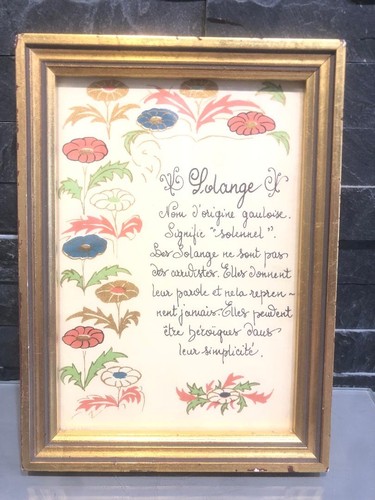 Solange
Nom d'origine gauloise.
Signifie "solennel".
Les Solange ne sont pas
des arrivistes. Elles donnent
leur parole et ne la repren-
nent jamais. Elles peuvent
être héroïques dans
leur simplicité.